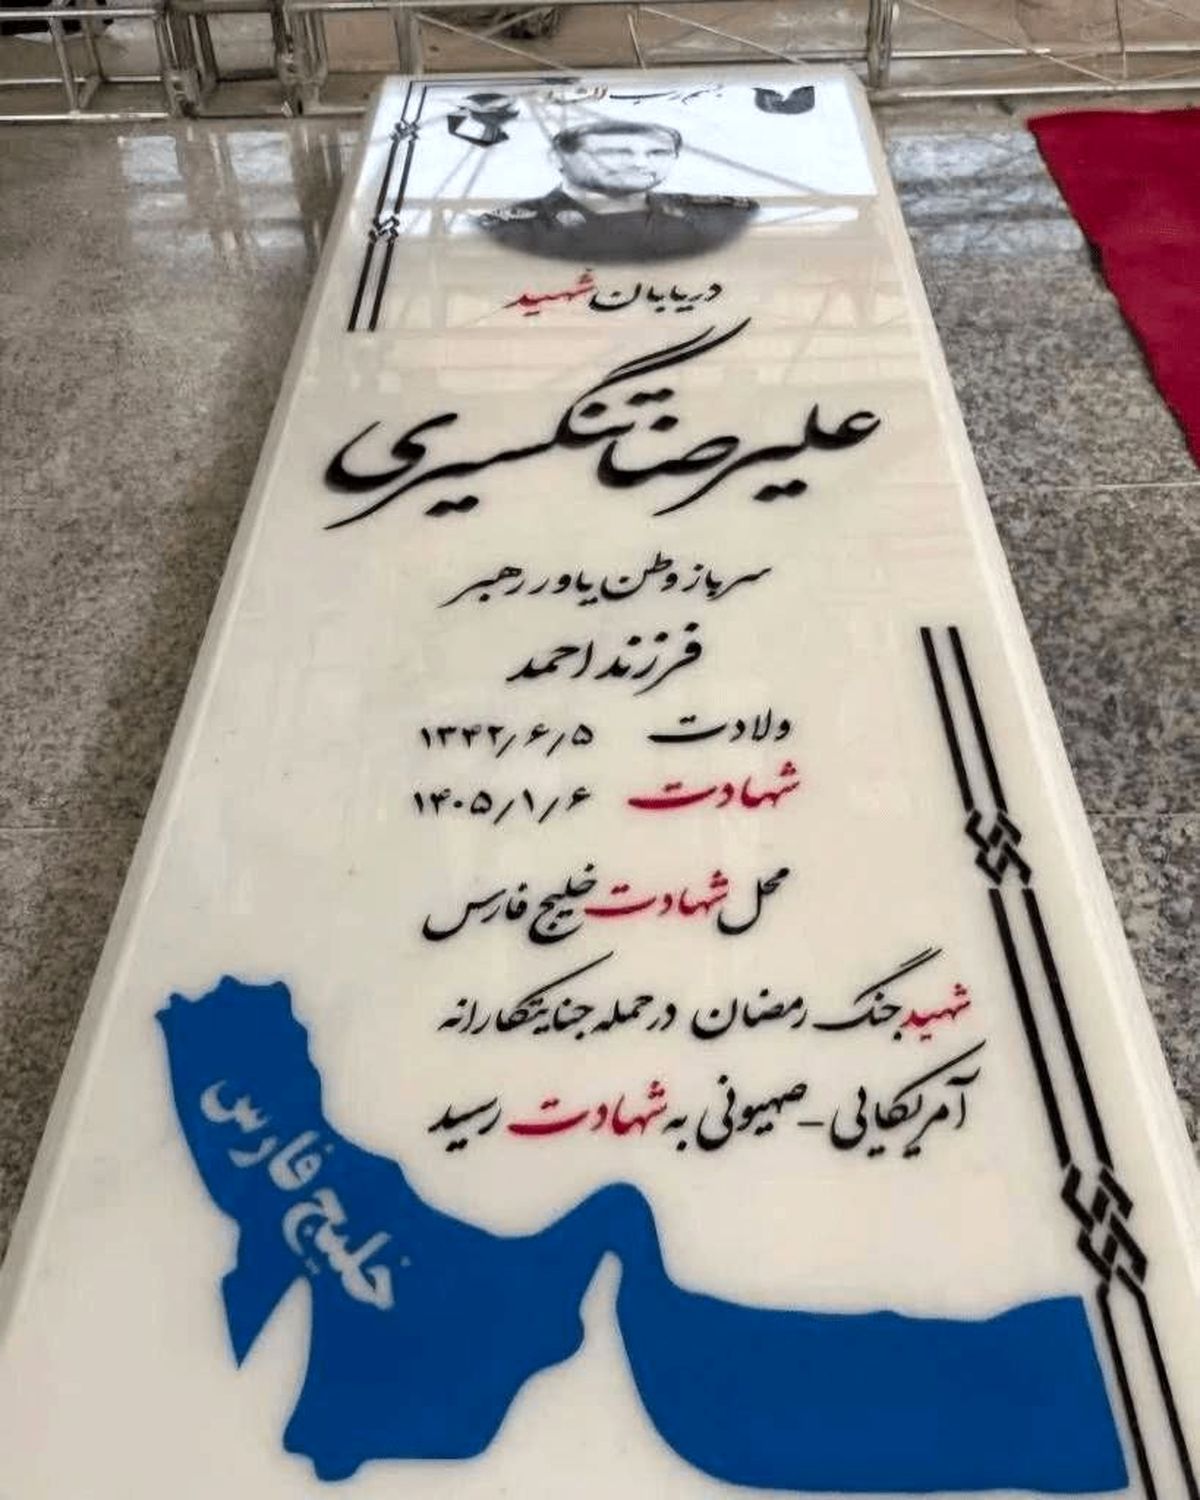 بسم رب الشهدا
دریابان شهید
علیرضا تنگسیری
سرباز وطن یاور رهبر
فرزند احمد
ولادت ۱۳۴۲/۶/۵
شهادت ۱۴۰۵/۱/۶
محل شهادت خلیج فارس
شهید جنگ رمضان در حمله جنایتکارانه
آمریکایی - صهیونی به شهادت رسید
خلیج فارس